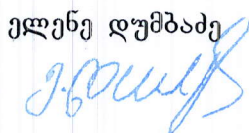 ელენე დუმბაძე